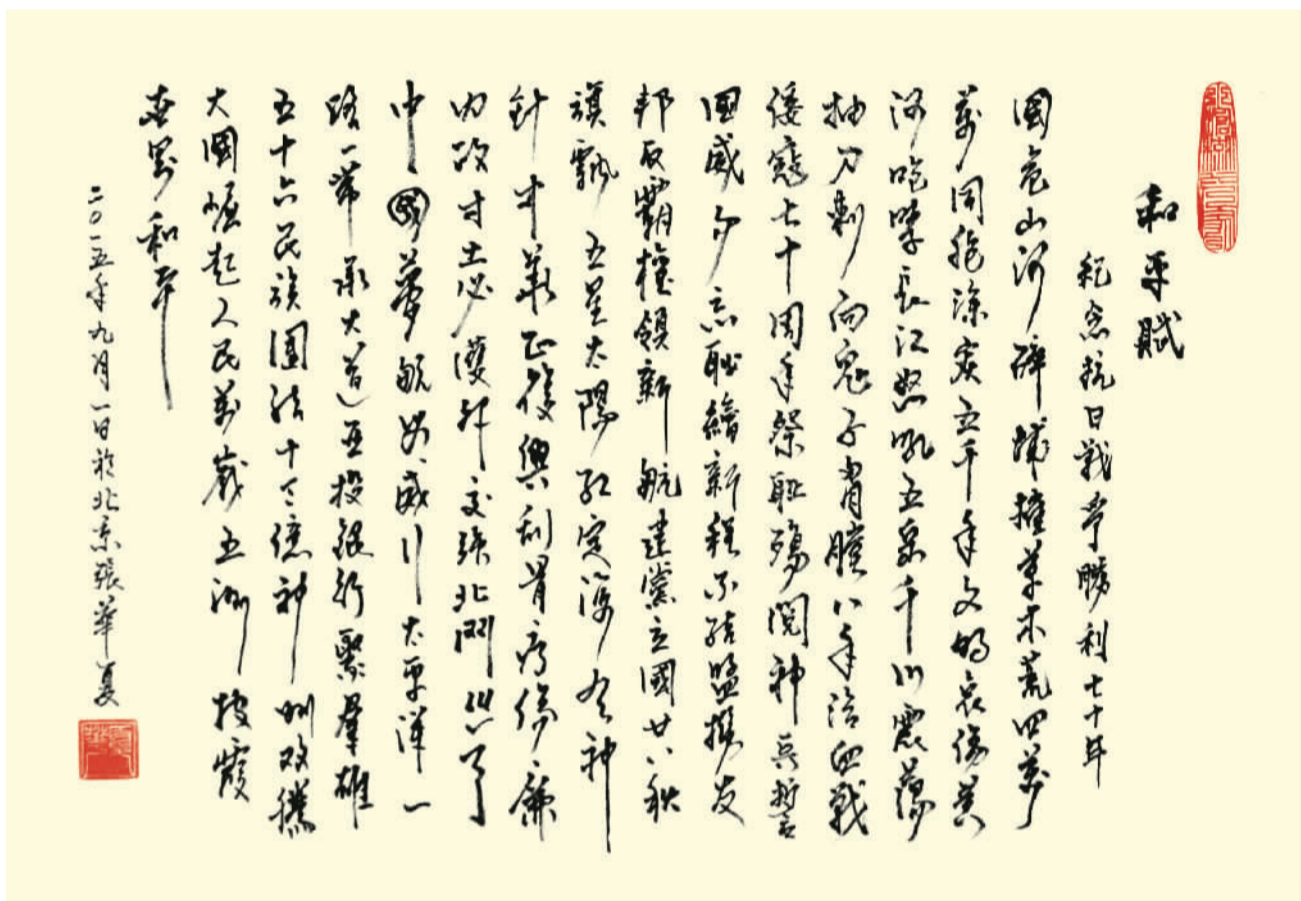 和平賦
紀念抗日戰爭勝利七十年
國危山河碎城摧草木荒四萬
萬同胞涂炭五千年文明哀傷黃
河咆哮長江怒吼五岳千川震蕩
抽刀刺向鬼子胥膛八年浴血戰
倭寇七十周年祭耻殤閱神兵誓言
國威勿忘耻續新程不結盟攜友
邦反霸權領新航建黨立國廿八秋
旗飄五星太陽紅定海有神
針中華正復興刮骨療傷廉
內政寸土必護外交強北鬥
中國夢航母威行太平洋一
路一帶承大道亞投銀行聚群雄
五十六民族團結十三億神州歡騰
大國崛起人民萬歲五洲披霞
世界和平
二〇一五年九月一日於北京張華夏